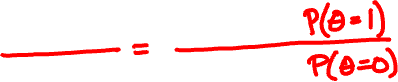 ____ = ____ P(θ=1)
P(θ=0)